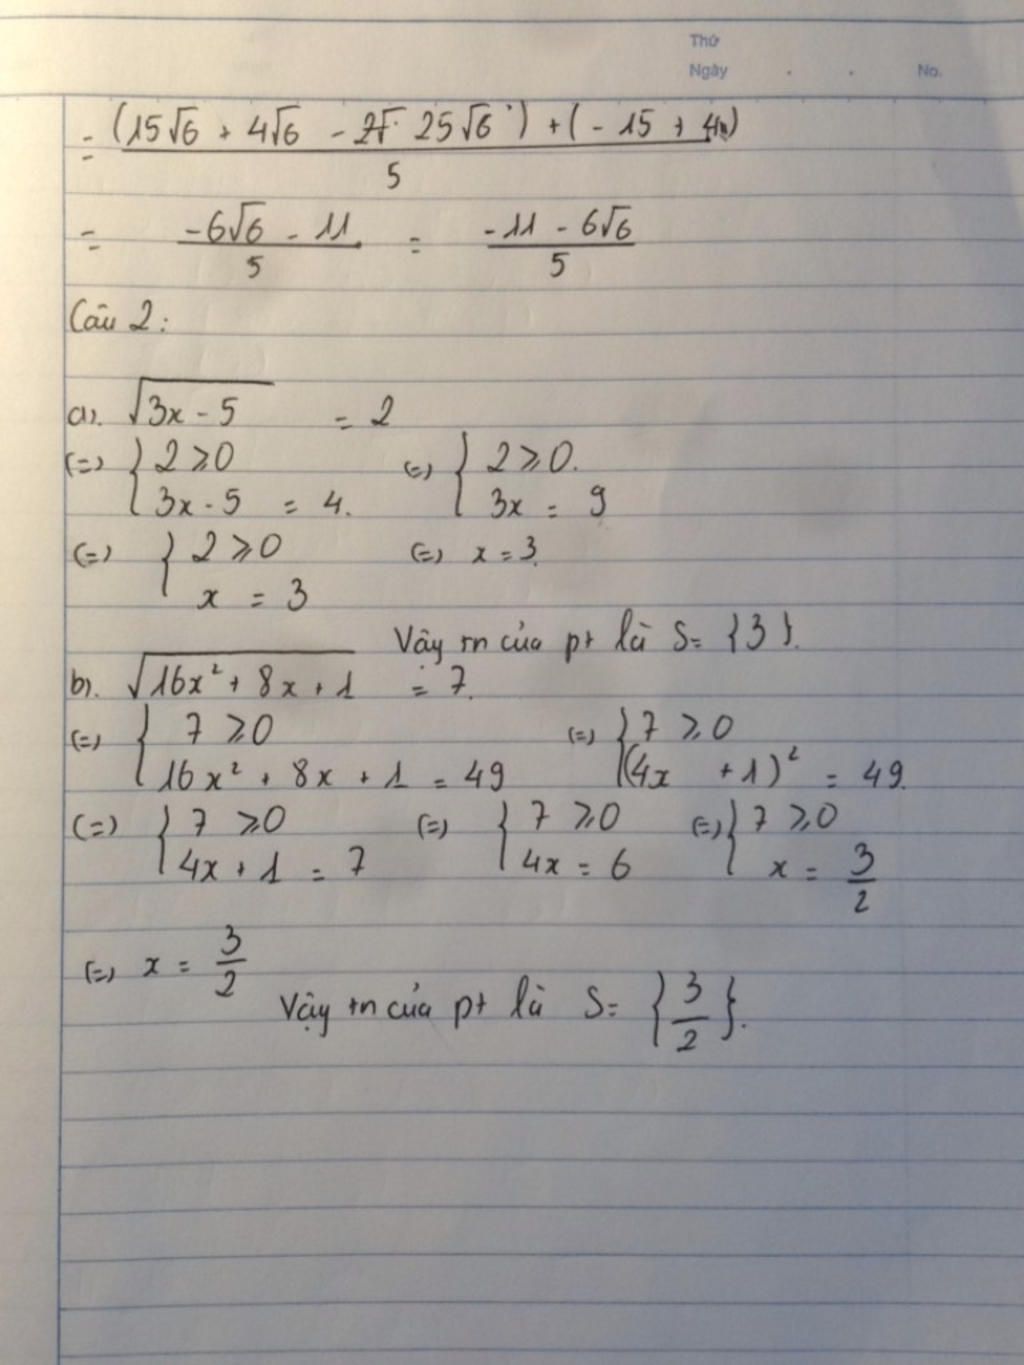 Thứ
Ngày . . No.
= (15√6 + 4√6 - 25√6) + (-15 + 4)
5
= -6√6 - 11 / 5 = -11 - 6√6 / 5
Câu 2:
a). √3x - 5 = 2
(=) { 2 ⩾ 0 (=) { 2 ⩾ 0.
3x - 5 = 4. 3x = 9
(=) { 2 ⩾ 0 (=) x = 3.
x = 3
Vậy tn của pt là S = {3}.
b). √16x² + 8x + 1 = 7.
(=) { 7 ⩾ 0 (=) { 7 ⩾ 0
16x² + 8x + 1 = 49 (4x + 1)² = 49.
(=) { 7 ⩾ 0 (=) { 7 ⩾ 0 (=) { 7 ⩾ 0
4x + 1 = 7 4x = 6 x = 3/2
(=) x = 3/2
Vậy tn của pt là S = {3/2}.